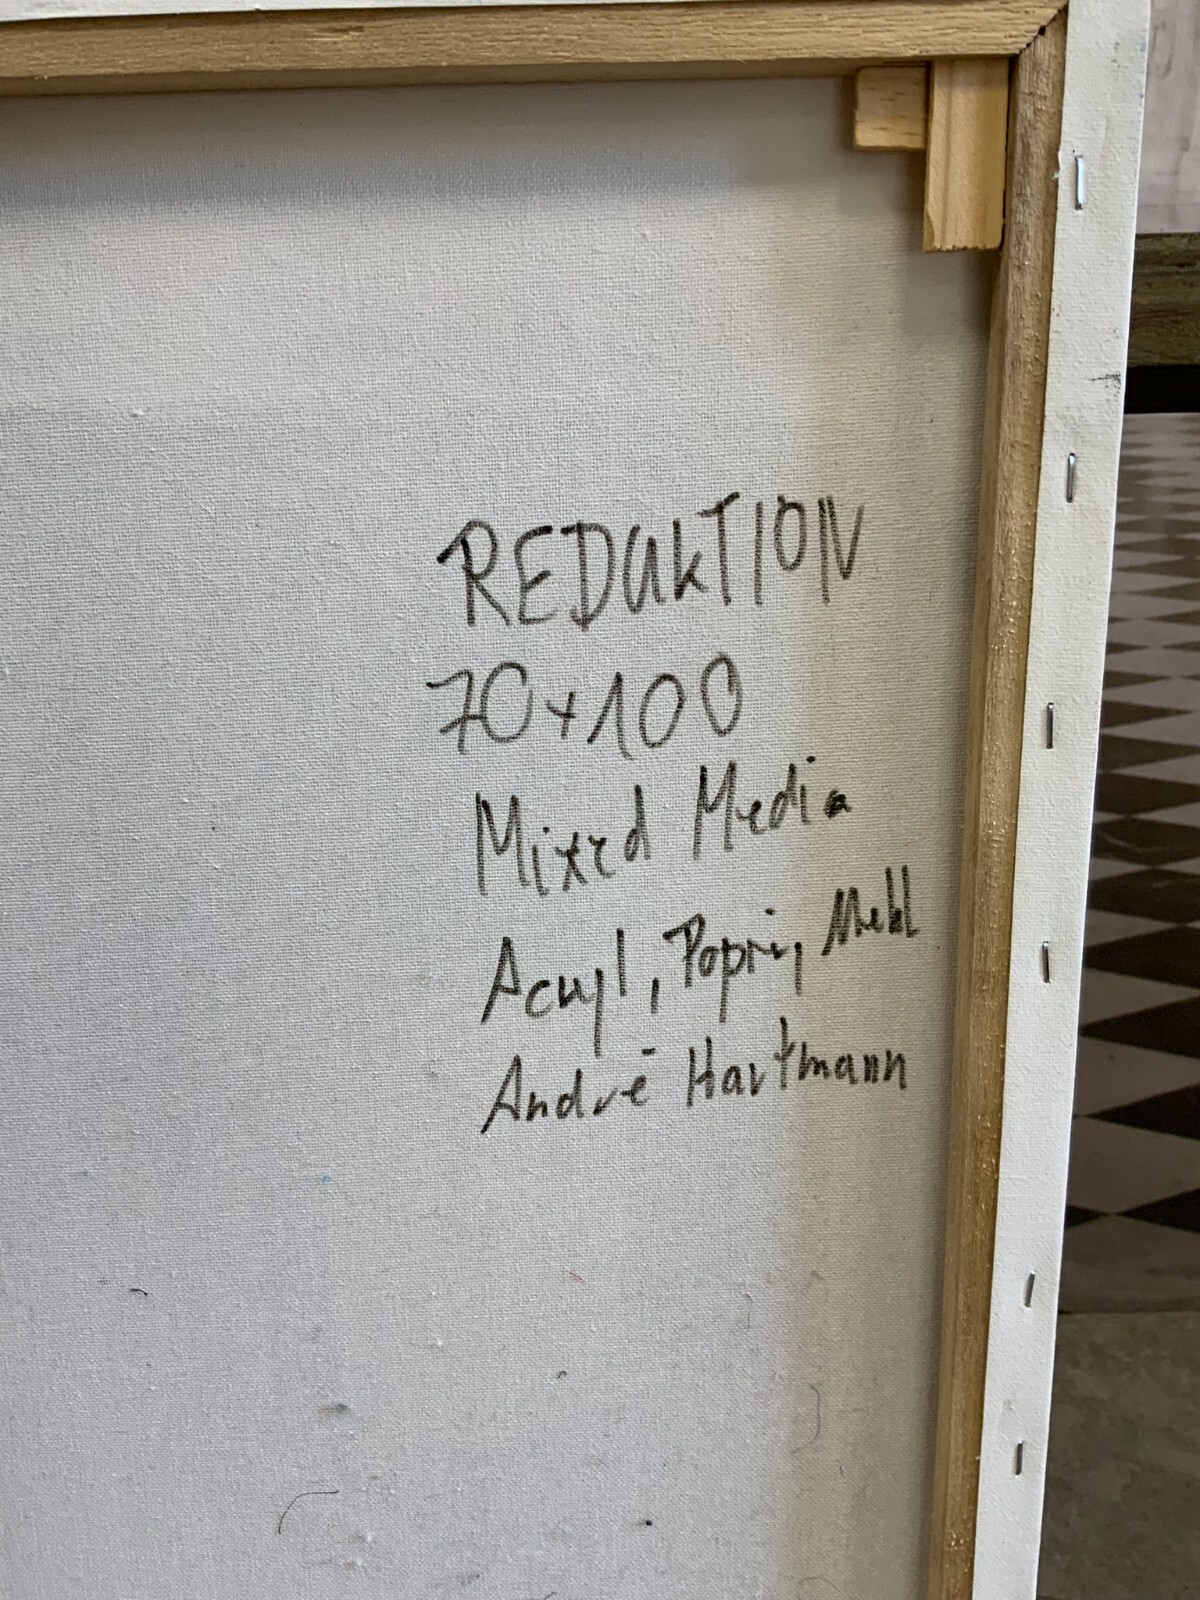 REDUKTION
70x100
Mixed Media
Acryl, Papier, Mehl
André Hartmann